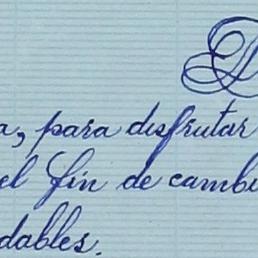 D
a, para disfrutar
el fin de cambi
dables.